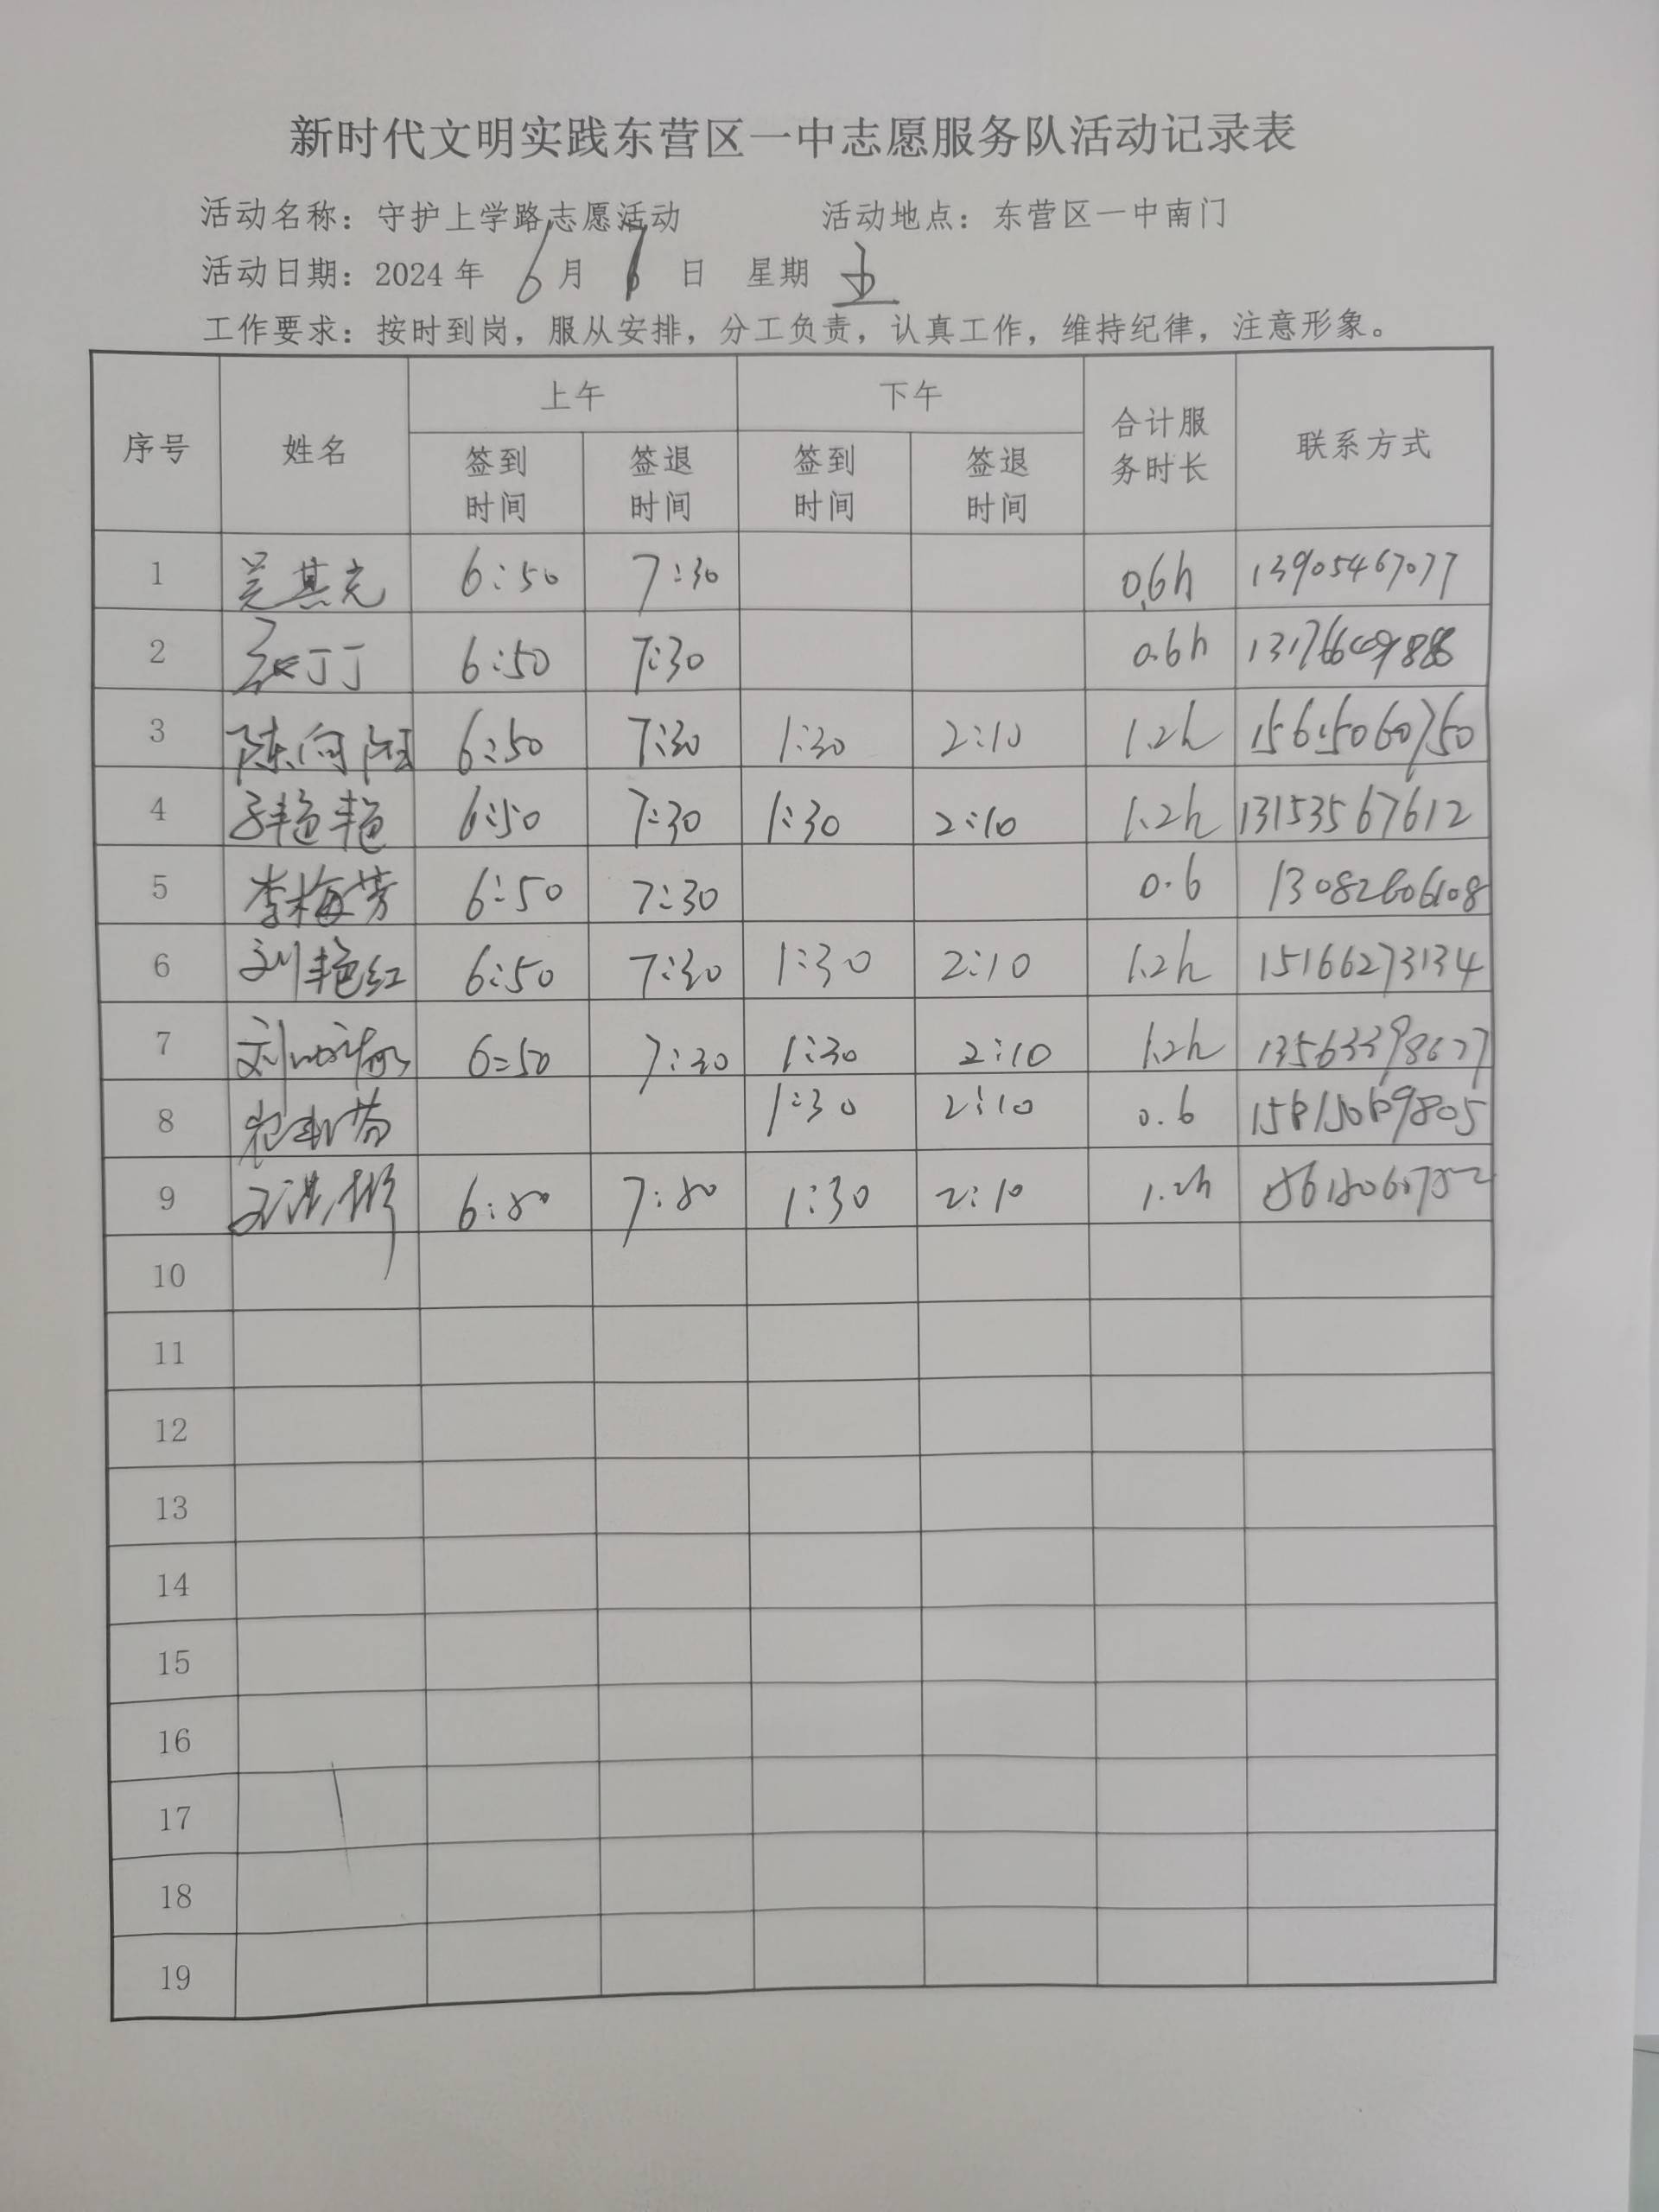 新时代文明实践东营区一中志愿服务队活动记录表
活动名称：守护上学路志愿活动 活动地点：东营区一中南门
活动日期：2024 年 6 月 日 星期 五
工作要求：按时到岗，服从安排，分工负责，认真工作，维持纪律，注意形象。
序号 姓名 上午 下午 合计服务时长 联系方式
签到时间 签退时间 签到时间 签退时间
1 吴其克 6:50 7:30 0.6h 13905467077
2 丁丁 6:50 7:30 0.6h
3 陈向阳 6:50 7:30 1:30 2:10 1.2h 15615060750
4 艳艳 6:50 7:30 1:30 2:10 1.2h 13153567612
5 李梅芳 6:50 7:30 0.6 13082606108
6 刘艳红 6:50 7:30 1:30 2:10 1.2h 15166273134
7 刘 6=50 7:30 1:30 2:10 1.2h 13563398677
8 1:30 2:10 0.6
9 6:50 7:30 1:30 2:10 1.2h
10
11
12
13
14
15
16
17
18
19